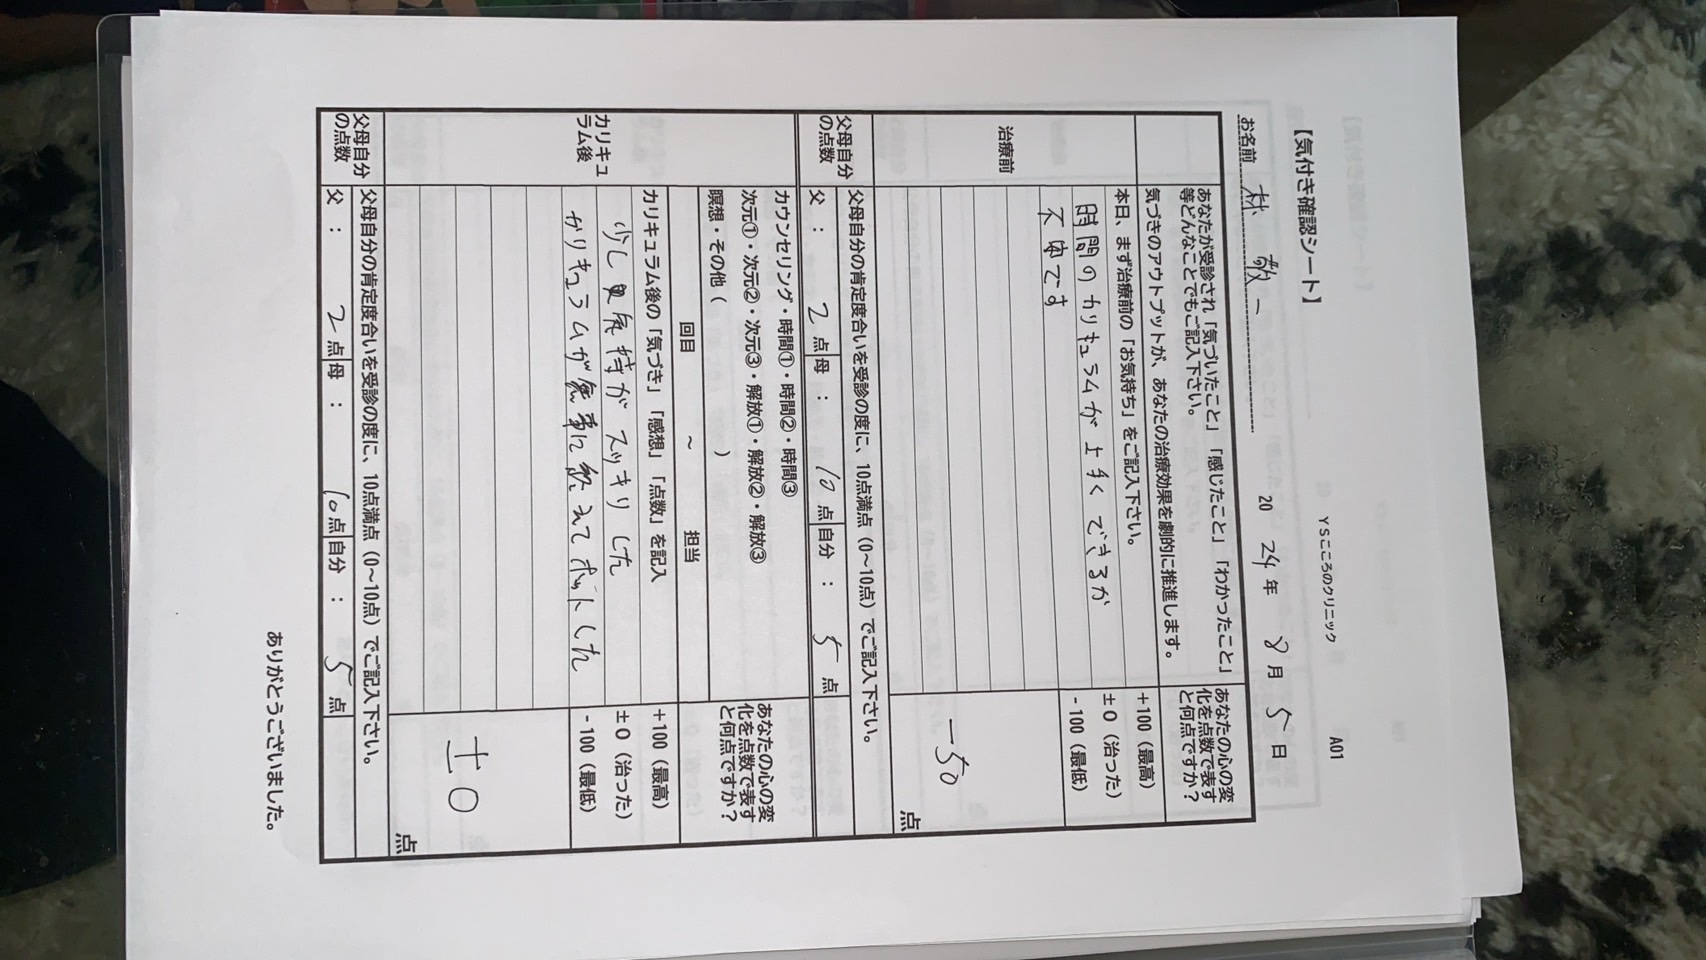 A01
YSこころのクリニック
【気付き確認シート】
お名前 林 敬一 2024年 8月 5日
あなたが受診され「気づいたこと」「感じたこと」「わかったこと」
等どんなことでもご記入下さい。
気づきのアウトプットが、あなたの治療効果を劇的に推進します。
あなたの心の変
化を点数で表す
と何点ですか?
治療前
本日、まず治療前の「お気持ち」をご記入下さい。
+100(最高)
±0(治った)
-100(最低)
時間のカリキュラムが上手くできるか
不安です
-50 点
父母自分
の点数
父母自分の肯定度合いを受診の度に、10点満点(0~10点)でご記入下さい。
父: 2点 母: 10点 自分: 5点
カウンセリング・時間①・時間②・時間③
次元①・次元②・次元③・解放①・解放②・解放③
瞑想・その他( )
あなたの心の変
化を点数で表す
と何点ですか?
回目 ~ 担当
カリキュ
ラム後
カリキュラム後の「気づき」「感想」「点数」を記入
+100(最高)
±0(治った)
-100(最低)
少し気持がスッキリした
カリキュラムが無事に終えてホットした
±0 点
父母自分
の点数
父母自分の肯定度合いを受診の度に、10点満点(0~10点)でご記入下さい。
父: 2点 母: 10点 自分: 5点
ありがとうございました。